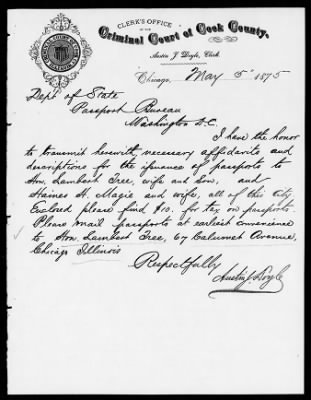 CLERK'S OFFICE
OF THE
Criminal Court of Cook County.
Austin J. Doyle, Clerk.
Chicago, May 5" 1875
Dept of State
Passport Bureau
Washington D.C.
I have the honor
to transmit herewith necessary affidavits and
descriptions for the issuance of passports to
Hon. Lambert Tree, wife and son, and
Haines H. Magie and wife, all of this City.
Enclosed please find $10. for tax on passports
Please mail passports at earliest convenience
to Hon. Lambert Tree, 67 Calumet Avenue,
Chicago Illinois
Respectfully
Austin J. Doyle